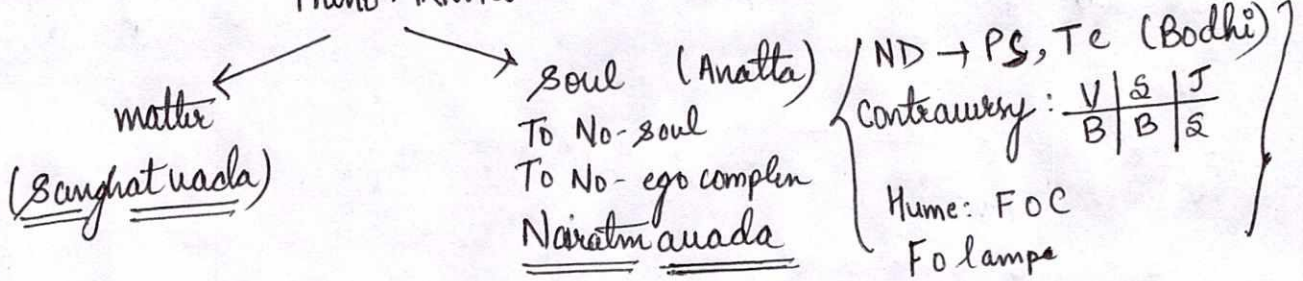 matter
(Sanghatvada)
Soul (Anatta)
To No-soul
To No-ego complex
Nairatmavada
ND → PS, Te (Bodhi)
Contraversy: V | S | J
B | B | S
Hume: FOC
Fo lamps